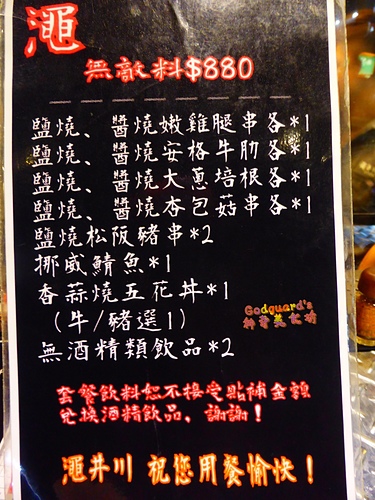 澠
無敵料$880
鹽燒、醬燒嫩雞腿串各*1
鹽燒、醬燒安格牛肋各*1
鹽燒、醬燒大蔥培根各*1
鹽燒、醬燒杏包菇串各*1
鹽燒松阪豬串*2
挪威鯖魚*1
香蒜燒五花丼*1
(牛/豬選1)
Godguard's
無酒精類飲品*2
套餐飲料恕不接受貼補金額
兌換酒精飲品，謝謝！
澠井川 祝您用餐愉快！